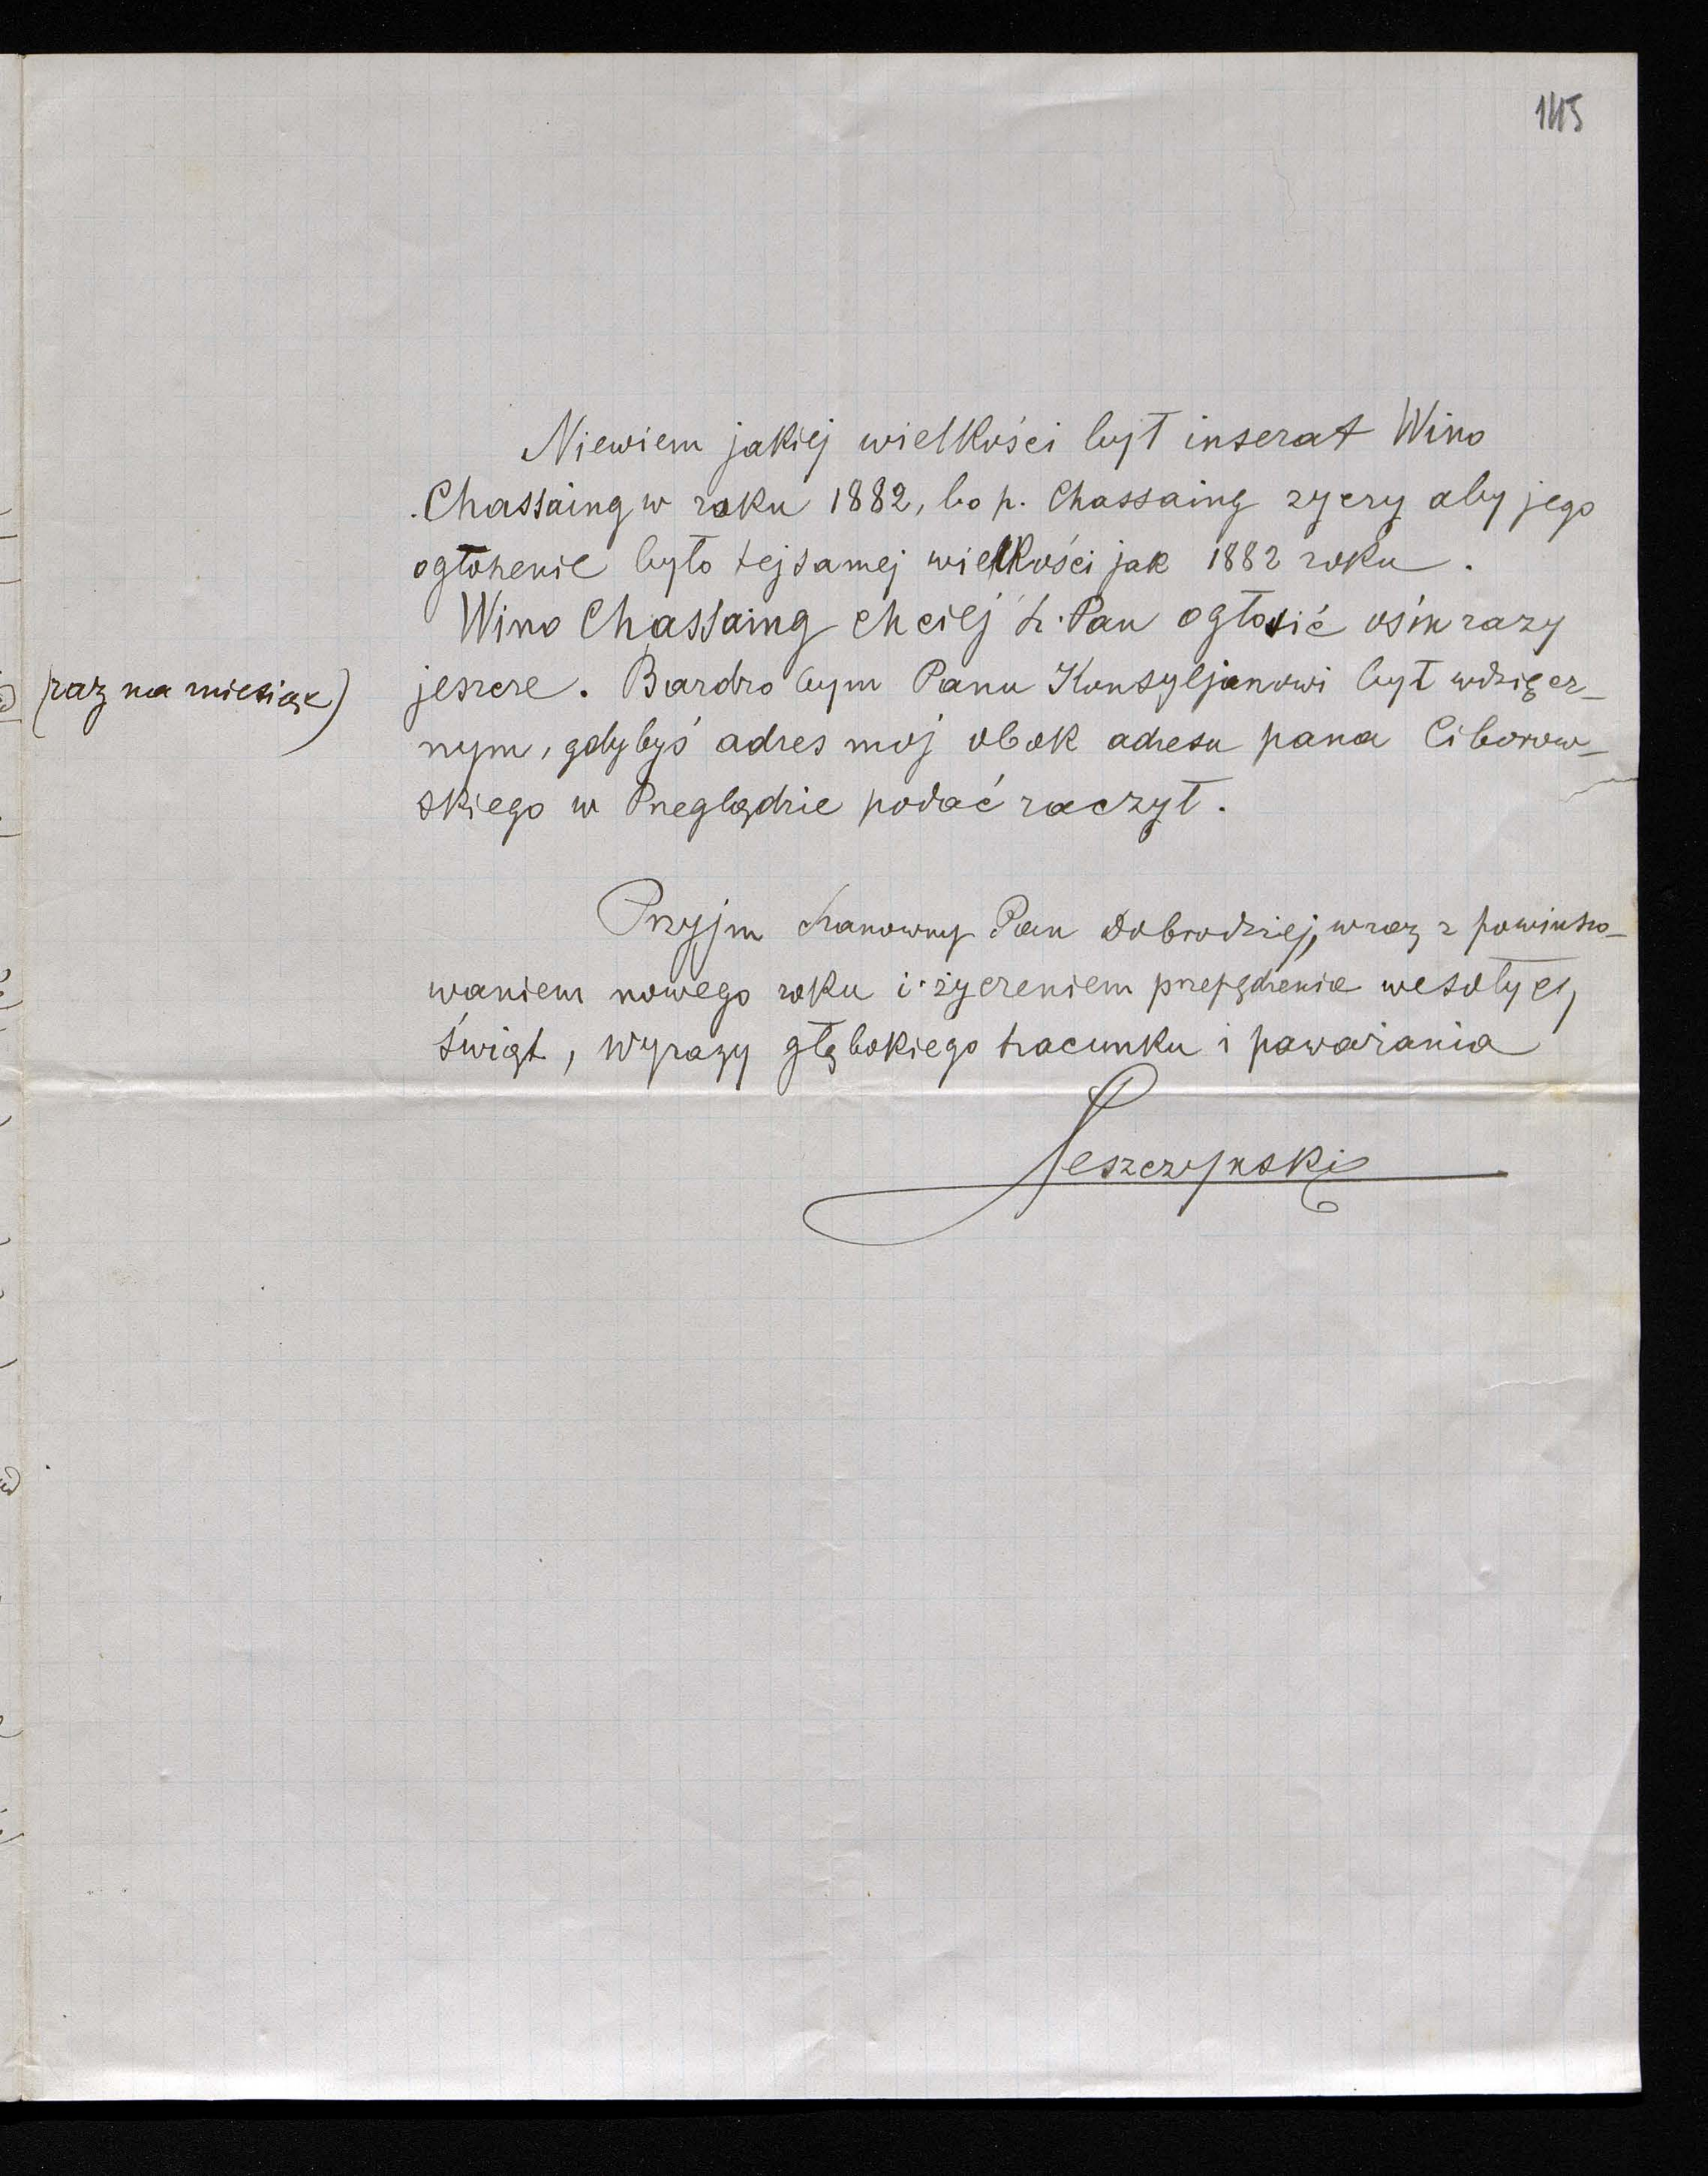 145
Niewiem jakiej wielkości był inserat Wino
Chassaing w roku 1882, bo p. Chassaing życzy aby jego
ogłoszenie było tejsamej wielkości jak 1882 roku.
Wino Chassaing chciej Sz. Pan ogłosić ośm razy
(raz na miesiąc)
jeszcze. Bardzo bym Panu Konsyljarzowi był wdzięcz-
nym, gdybyś adres moj obok adresu pana Ciborow-
skiego w Przeglądzie podać raczył.
Przyjm Szanowny Pan Dobrodziej, wraz z powinszo-
waniem nowego roku i życzeniem przepędzenia wesołych
świąt, wyrazy głębokiego szacunku i poważania
Leszczynski